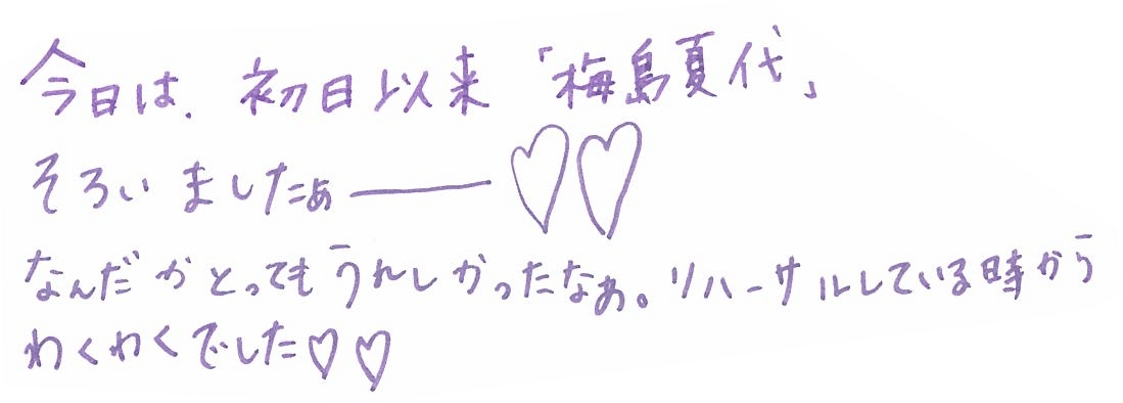 今日は、初日以来「梅島夏代」
そろいましたぁー♡♡
なんだかとってもうれしかったなぁ。リハーサルしている時から
わくわくでした♡♡